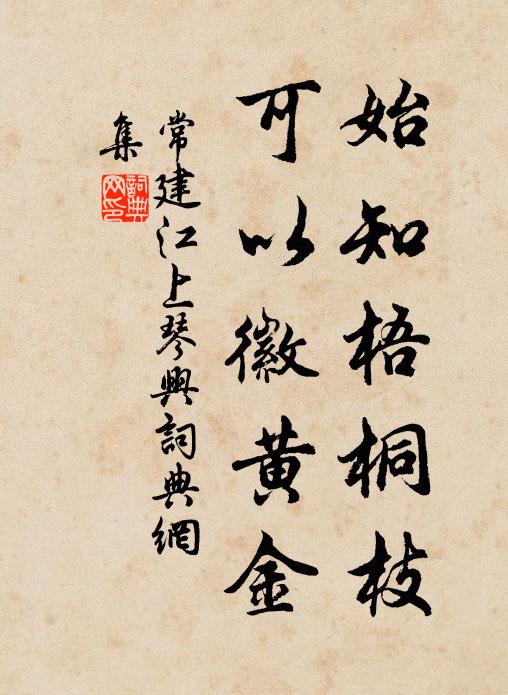 始知梧桐枝
可以徽黄金
常建江上琴興詞典網
集
詞典网印